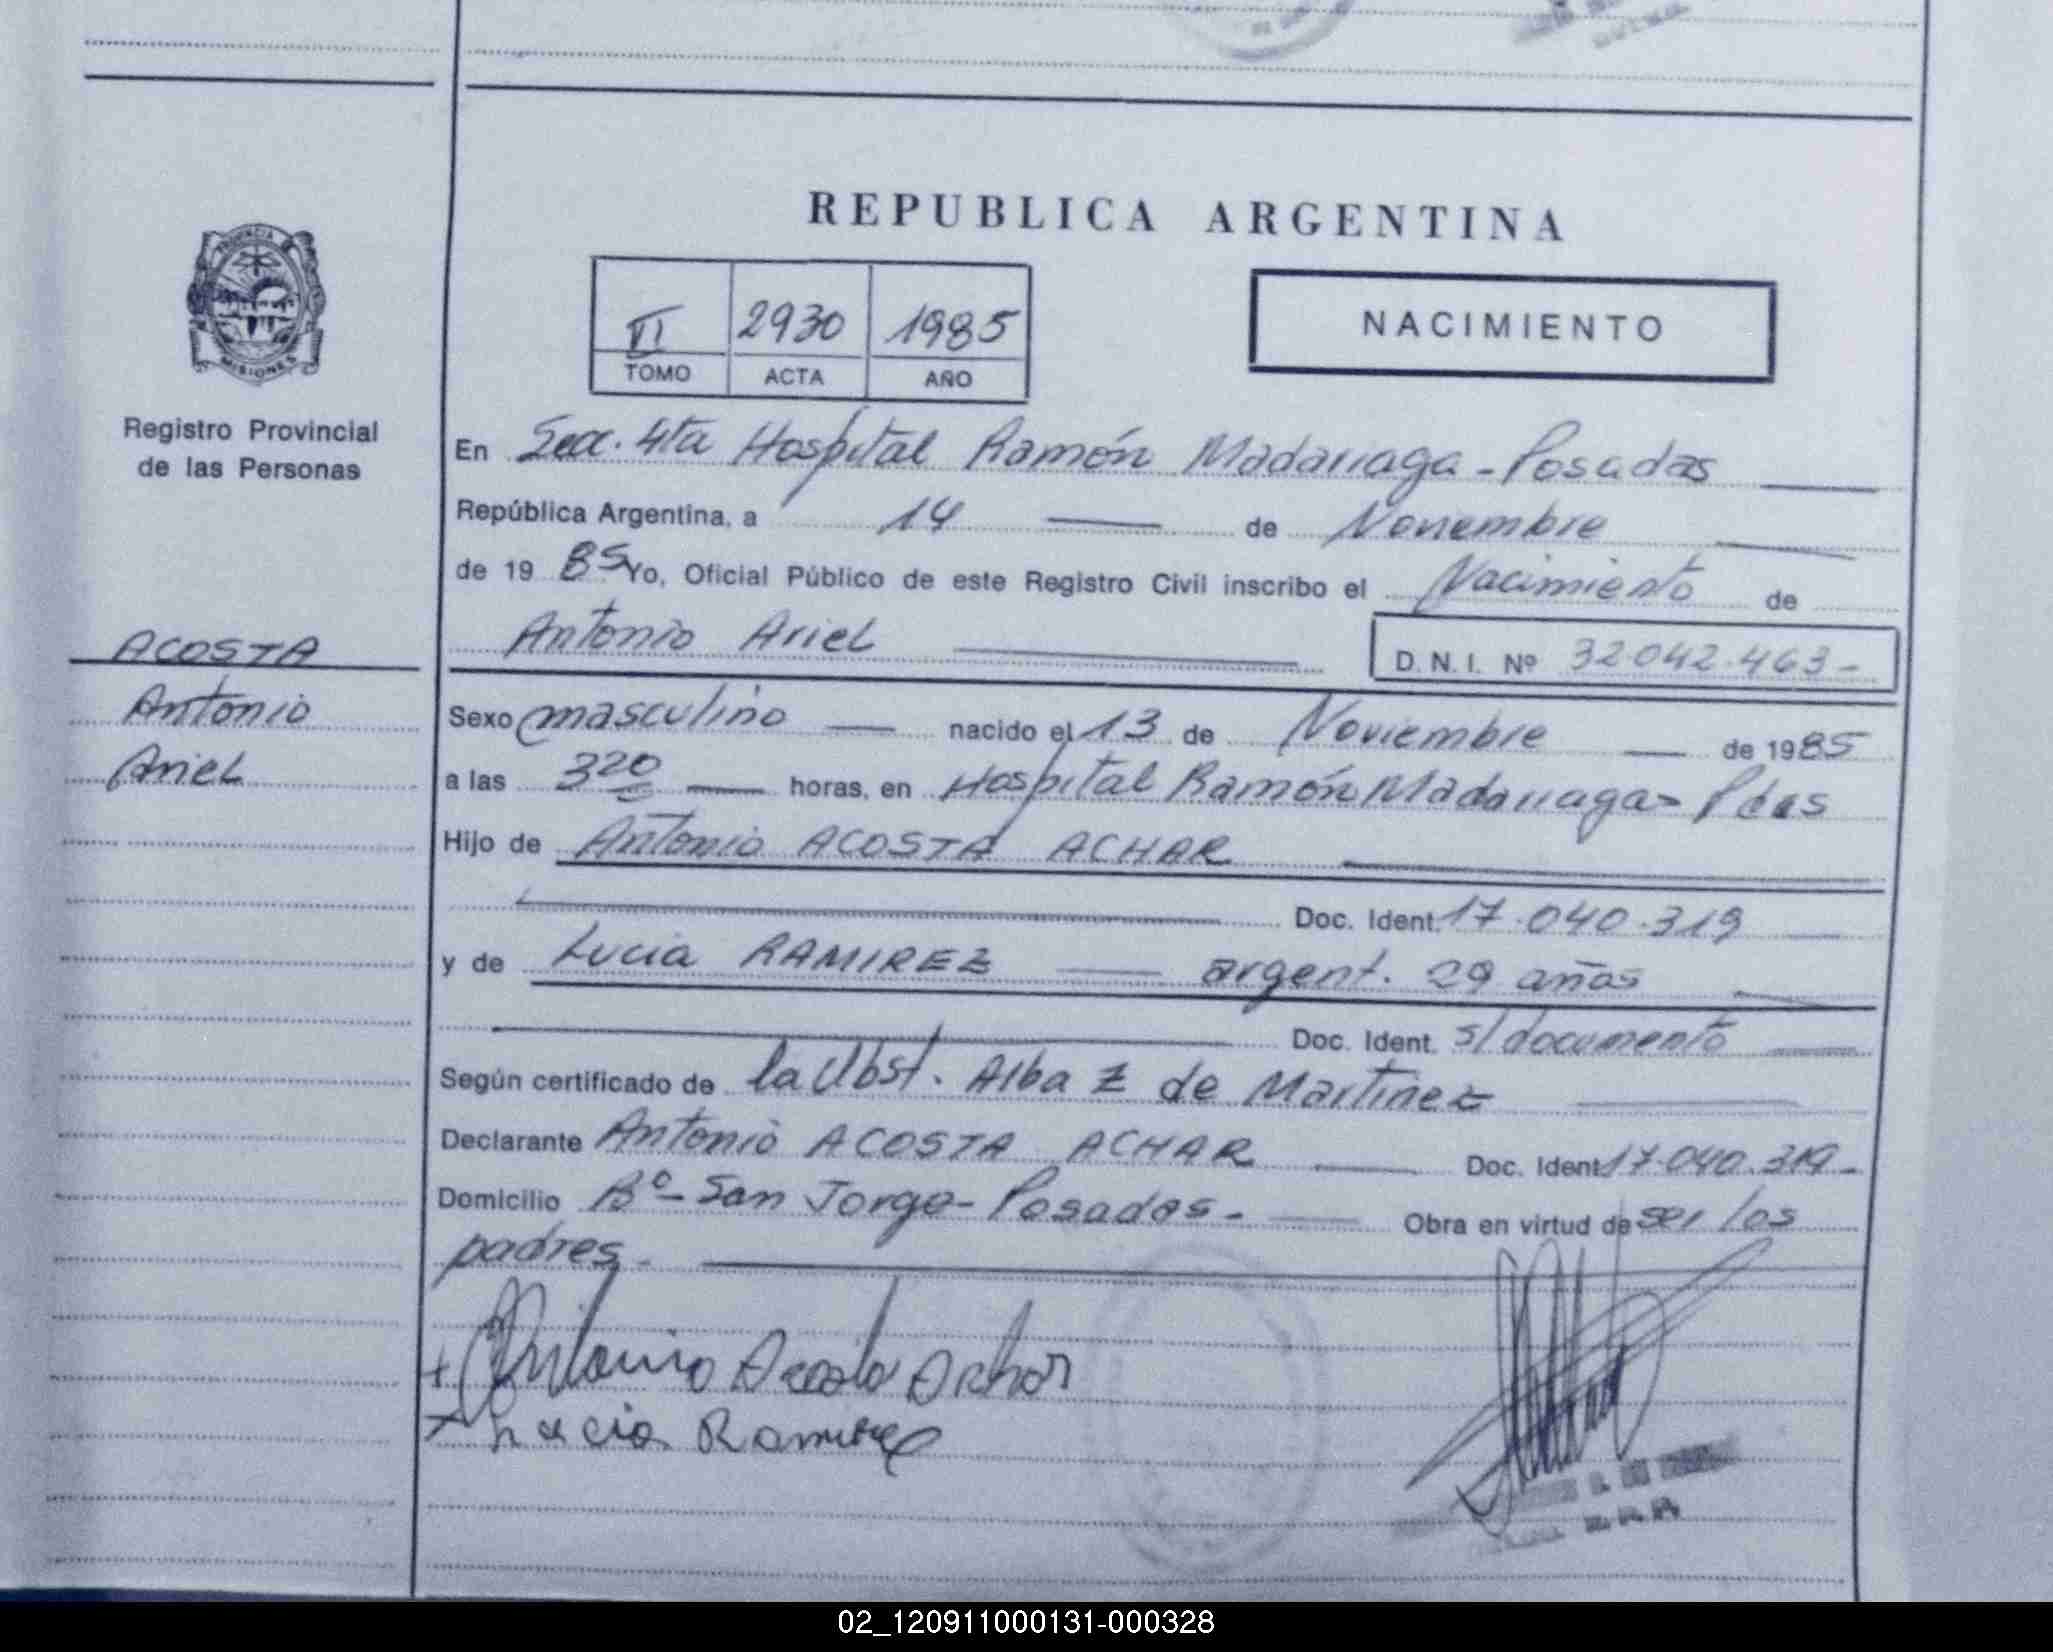 REPUBLICA ARGENTINA
PROVINCIA DE
MISIONES
Registro Provincial
de las Personas
VI 2930 1985
TOMO ACTA AÑO
NACIMIENTO
En Secc. 4ta Hospital Ramón Madariaga - Posadas
República Argentina, a 14 de Noviembre
de 19 85 Yo, Oficial Público de este Registro Civil inscribo el Nacimiento de
Antonio Ariel D. N. I. Nº 32.042.463-
ACOSTA
Antonio
Ariel
Sexo masculino nacido el 13 de Noviembre de 1985
a las 3 20 horas, en Hospital Ramón Madariaga - Pdas
Hijo de Antonio ACOSTA ACHAR
Doc. Ident. 17.040.319
y de Lucia RAMIREZ argent. 29 años
Doc. Ident. s/documento
Según certificado de la Obst. Alba Z de Martinez
Declarante Antonio ACOSTA ACHAR Doc. Ident. 17.040.319-
Domicilio Bº - San Jorge - Posadas - Obra en virtud de ser los
padres -
+ Antonio Acosta Achar
+ Lucia Ramirez
02_120911000131-000328